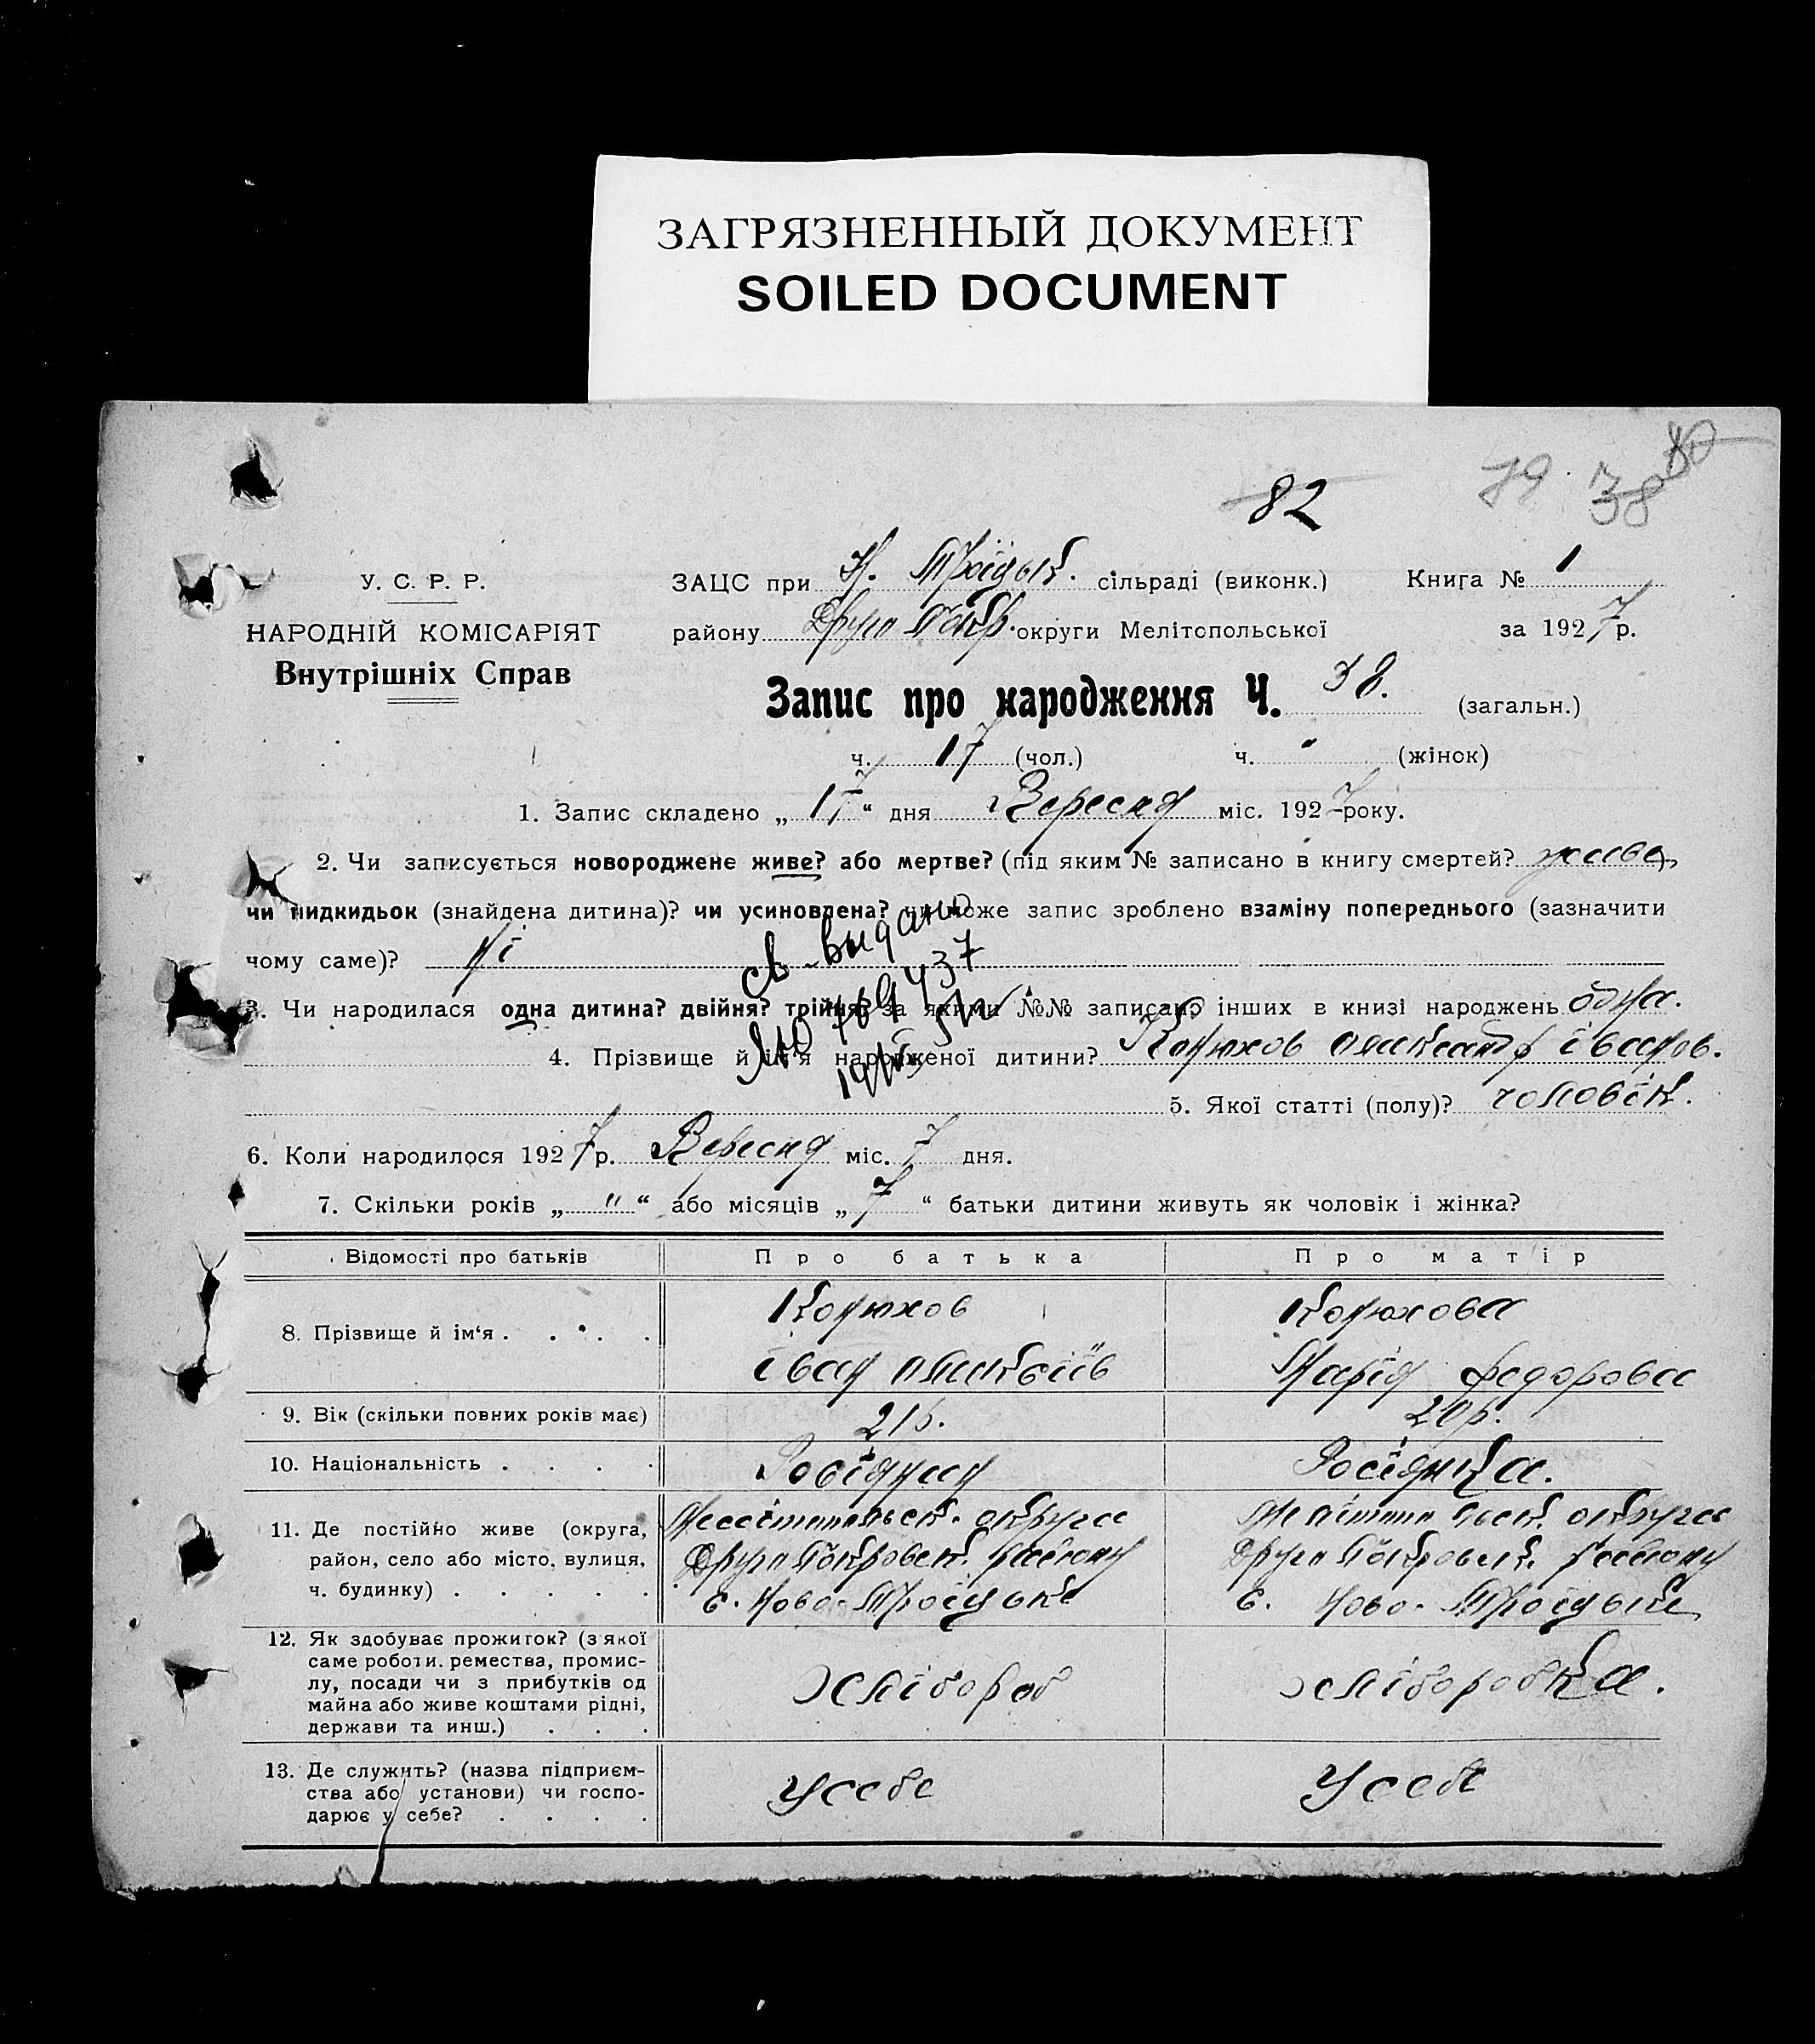 ЗАГРЯЗНЕННЫЙ ДОКУМЕНТ
SOILED DOCUMENT
82 79 38 80
У. С. Р. Р.
НАРОДНІЙ КОМІСАРІЯТ
Внутрішніх Справ
ЗАЦС при Н. Троїцьк. сільраді (виконк.) Книга № 1
району Друго Покр. округи Мелітопольської за 1927 р.
Запис про народження Ч. 38. (загальн.)
ч. 17 (чол.) ч. " (жінок)
1. Запис складено „ 17 “ дня Вересня міс. 1927 року.
2. Чи записується новороджене живе? або мертве? (під яким № записано в книгу смертей? жива,
чи підкидьок (знайдена дитина)? чи усиновлена? чи може запис зроблено взаміну попереднього (зазначити
чому саме)? Ні
св-выдано
ЯЮ 769437
3. Чи народилася одна дитина? двійня? трійня? за якими №№ записано інших в книзі народжень одна.
4. Прізвище й ім'я народженої дитини? Конюхов Олександр Іванов.
5. Якої статті (полу)? чоловік.
6. Коли народилося 1927 р. Вересня міс. 7 дня.
7. Скільки років „ " “ або місяців „ 7 “ батьки дитини живуть як чоловік і жінка?
Відомості про батьків Про батька Про матір
8. Прізвище й ім'я . . . . Конюхов Конюхова
Іван Олексіїв Марія Федорова
9. Вік (скільки повних років має) 21 р. 20 р.
10. Національність . . . . Росіянин Росіянка.
11. Де постійно живе (округа, Мелітопольск. округа Мелітопольск. округа
район, село або місто, вулиця, Друго Покровськ. району Друго Покровськ. району
ч. будинку) . . . . . с. Ново-Троїцьке с. Ново-Троїцьке
12. Як здобуває прожиток? (з якої
саме роботи, ремества, промис-
лу, посади чи з прибутків од хлібороб хліборобка.
майна або живе коштами рідні,
держави та инш.) . . .
13. Де служить? (назва підприєм-
ства або установи) чи госпо- У себе У себе
дарює у себе? . . . .